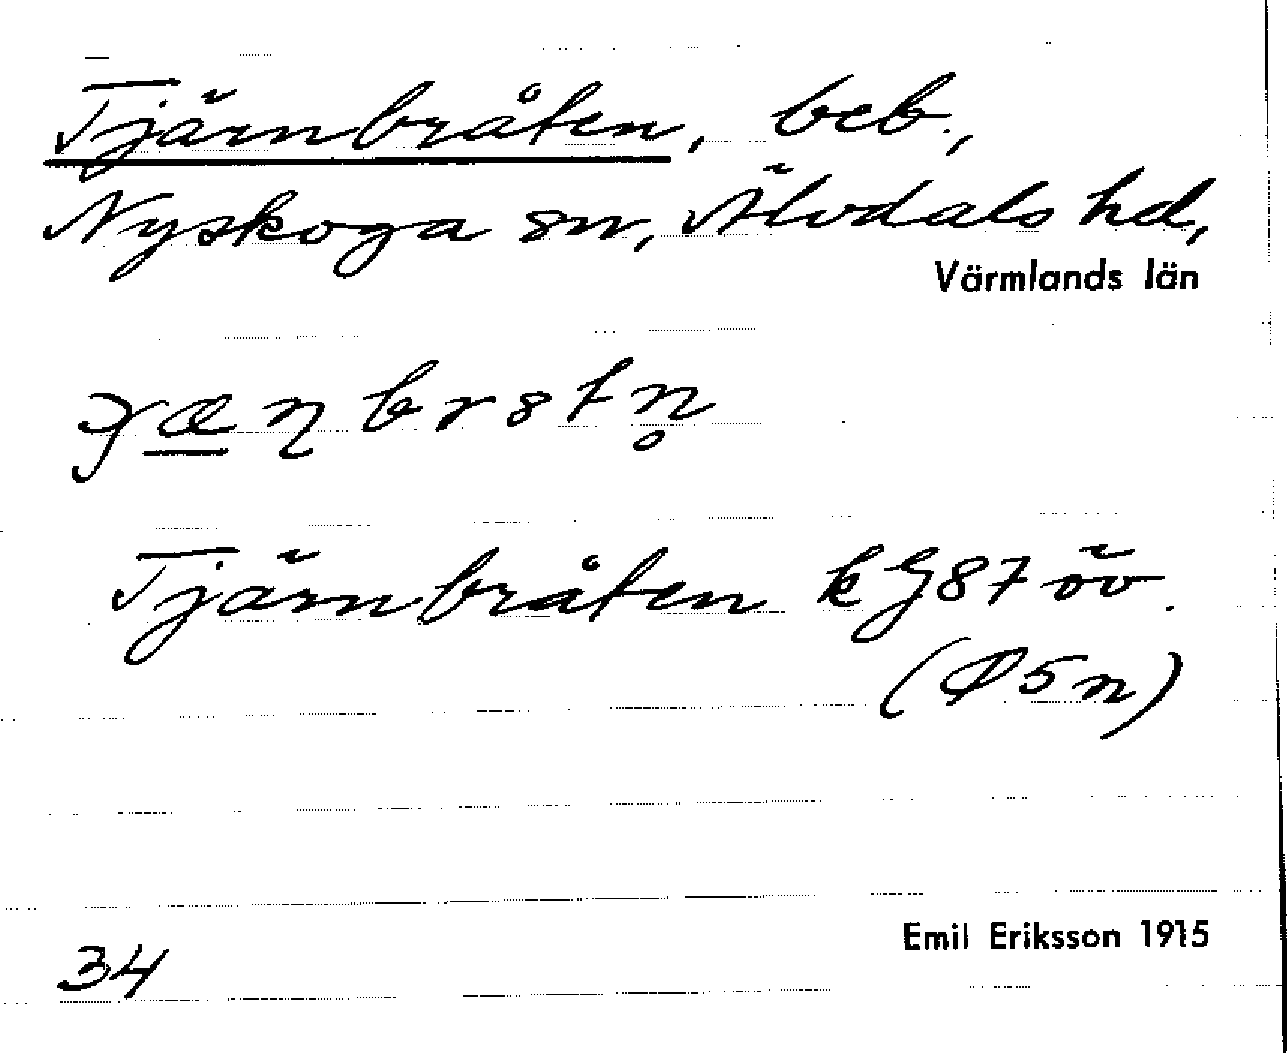 Tjärnbråten, beb.,
Nyskoga sn, Älvdals hd,
Värmlands län
Tjärnbråten kG87öv.
(Ø5n)
Emil Eriksson 1915
34